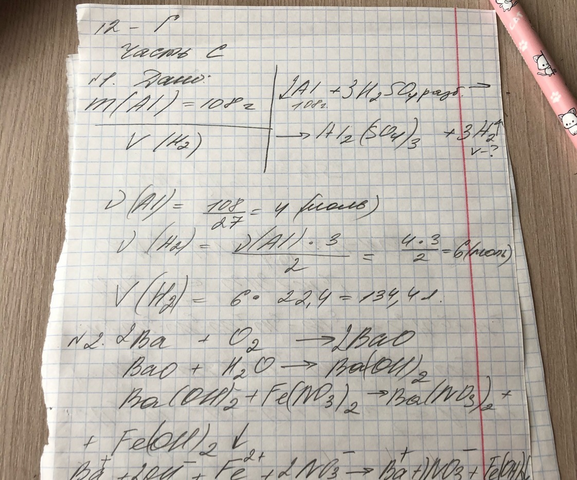 12 - Г
Часть С
№1. Дано:
m(Al) = 108г
V (H₂)
2Al + 3H₂SO₄ разб. →
108г
→ Al₂(SO₄)₃ + 3H₂↑
V-?
ν(Al) = 108/27 = 4 (моль)
ν(H₂) = ν(Al) · 3 / 2 = 4·3/2 = 6(моль)
V(H₂) = 6 · 22,4 = 134,4 л.
№2. 2Ba + O₂ → 2BaO
BaO + H₂O → Ba(OH)₂
Ba(OH)₂ + Fe(NO₃)₂ → Ba(NO₃)₂ +
+ Fe(OH)₂↓
Ba⁺ + 2OH⁻ + Fe²⁺ + 2NO₃⁻ → Ba⁺ + NO₃⁻ + Fe(OH)